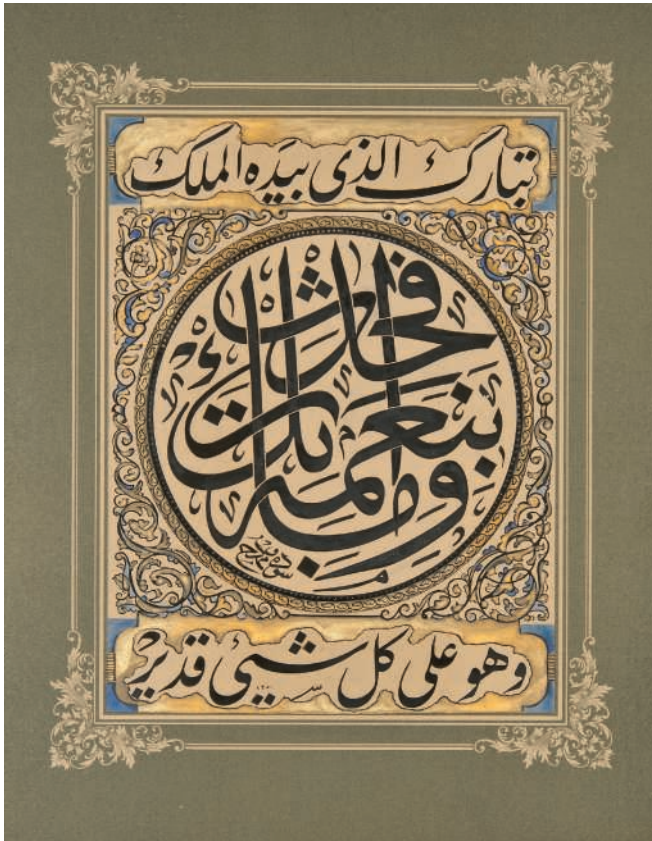 تبارك الذى بيَده الملك
وأما بنعمة ربك فحدث
وهو على كل شيئ قدير